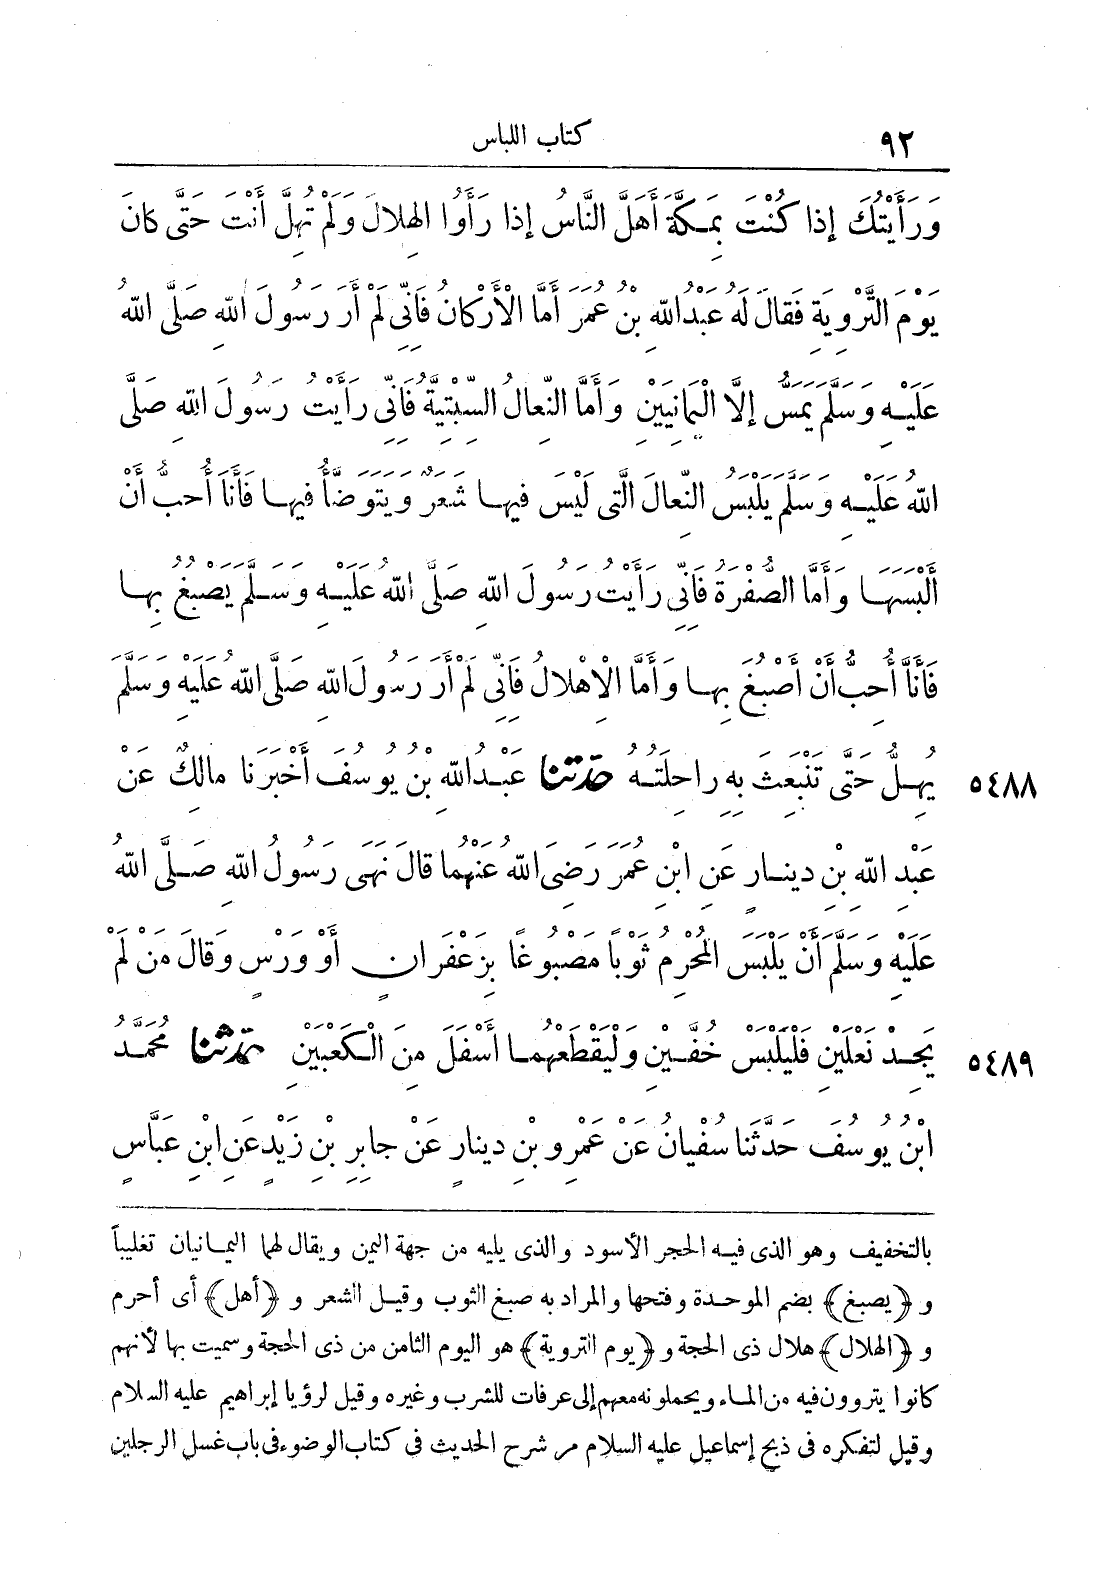 ٩٢ كتاب اللباس
وَرَأَيْتُكَ إذا كُنْتَ بِمَكَّةَ أَهَلَّ النَّاسُ إذا رَأَوُا الهِلالَ وَلَمْ تُهِلَّ أَنْتَ حَتَّى كانَ
يَوْمَ التَّرْوِيَةِ فَقالَ لَهُ عَبْدُ اللهِ بنُ عُمَرَ أَمَّا الْأَرْكانُ فَانِّى لَمْ أَرَ رَسُولَ اللهِ صَلَّى اللهُ
عَلَيْهِ وَسَلَّمَ يَمَسُّ إلَّا الْيَمانِيَيْنِ وَأَمَّا النِّعالُ السِّبْتِيَّةُ فَانِّى رَأَيْتُ رَسُولَ اللهِ صلَّى
اللهُ عَلَيْهِ وَسَلَّمَ يَلْبَسُ النِّعالَ الَّتِى لَيْسَ فيها شَعَرٌ وَيَتَوَضَّأُ فيها فَأَنَا أُحِبُّ أَنْ
أَلْبَسَهَا وَأَمَّا الصُّفْرَةُ فَانِّى رَأَيْتُ رَسُولَ اللهِ صَلَّى اللهُ عَلَيْهِ وَسَلَّمَ يَصْبُغُ بِها
فَأَنَا أُحِبُّ أَنْ أَصْبُغَ بِها وَأَمَّا الْاهْلالُ فَانِّى لَمْ أَرَ رَسُولَ اللهِ صَلَّى اللهُ عَلَيْهِ وَسَلَّمَ
٥٤٨٨ يُهِلُّ حَتَّى تَنْبَعِثَ بِهِ راحِلَتُهُ حدثنا عَبْدُ اللهِ بنُ يُوسُفَ أَخْبَرَنا مالكٌ عَنْ
عَبْدِ اللهِ بْنِ دينارٍ عَنِ ابْنِ عُمَرَ رَضِىَ اللهُ عَنْهُما قالَ نَهَى رَسُولُ اللهِ صَلَّى اللهُ
عَلَيْهِ وَسَلَّمَ أَنْ يَلْبَسَ المُحْرِمُ ثَوْباً مَصْبُوغًا بِزَعْفَرانٍ أَوْ وَرْسٍ وَقالَ مَنْ لَمْ
٥٤٨٩ يَجِدْ نَعْلَيْنِ فَلْيَلْبَسْ خُفَّيْنِ وَلْيَقْطَعْهُما أَسْفَلَ مِنَ الْكَعْبَيْنِ حدثنا مُحَمَّدُ
ابْنُ يُوسُفَ حَدَّثَنا سُفْيانُ عَنْ عَمْرِو بْنِ دينارٍ عَنْ جابِرِ بْنِ زَيْدٍ عَنِ ابْنِ عَبَّاسٍ
بالتخفيف وهو الذى فيه الحجر الأسود والذى يليه من جهة اليمن ويقال لهما اليمانيان تغليباً
و ﴿يصبغ﴾ بضم الموحدة وفتحها والمراد به صبغ الثوب وقيل الشعر و ﴿أهل﴾ أى أحرم
و ﴿الهلال﴾ هلال ذى الحجة و ﴿يوم التروية﴾ هو اليوم الثامن من ذى الحجة وسميت بها لأنهم
كانوا يتروون فيه من الماء ويحملونه معهم إلى عرفات للشرب وغيره وقيل لرؤيا إبراهيم عليه السلام
وقيل لتفكره فى ذبح إسماعيل عليه السلام مر شرح الحديث فى كتاب الوضوء فى باب غسل الرجلين